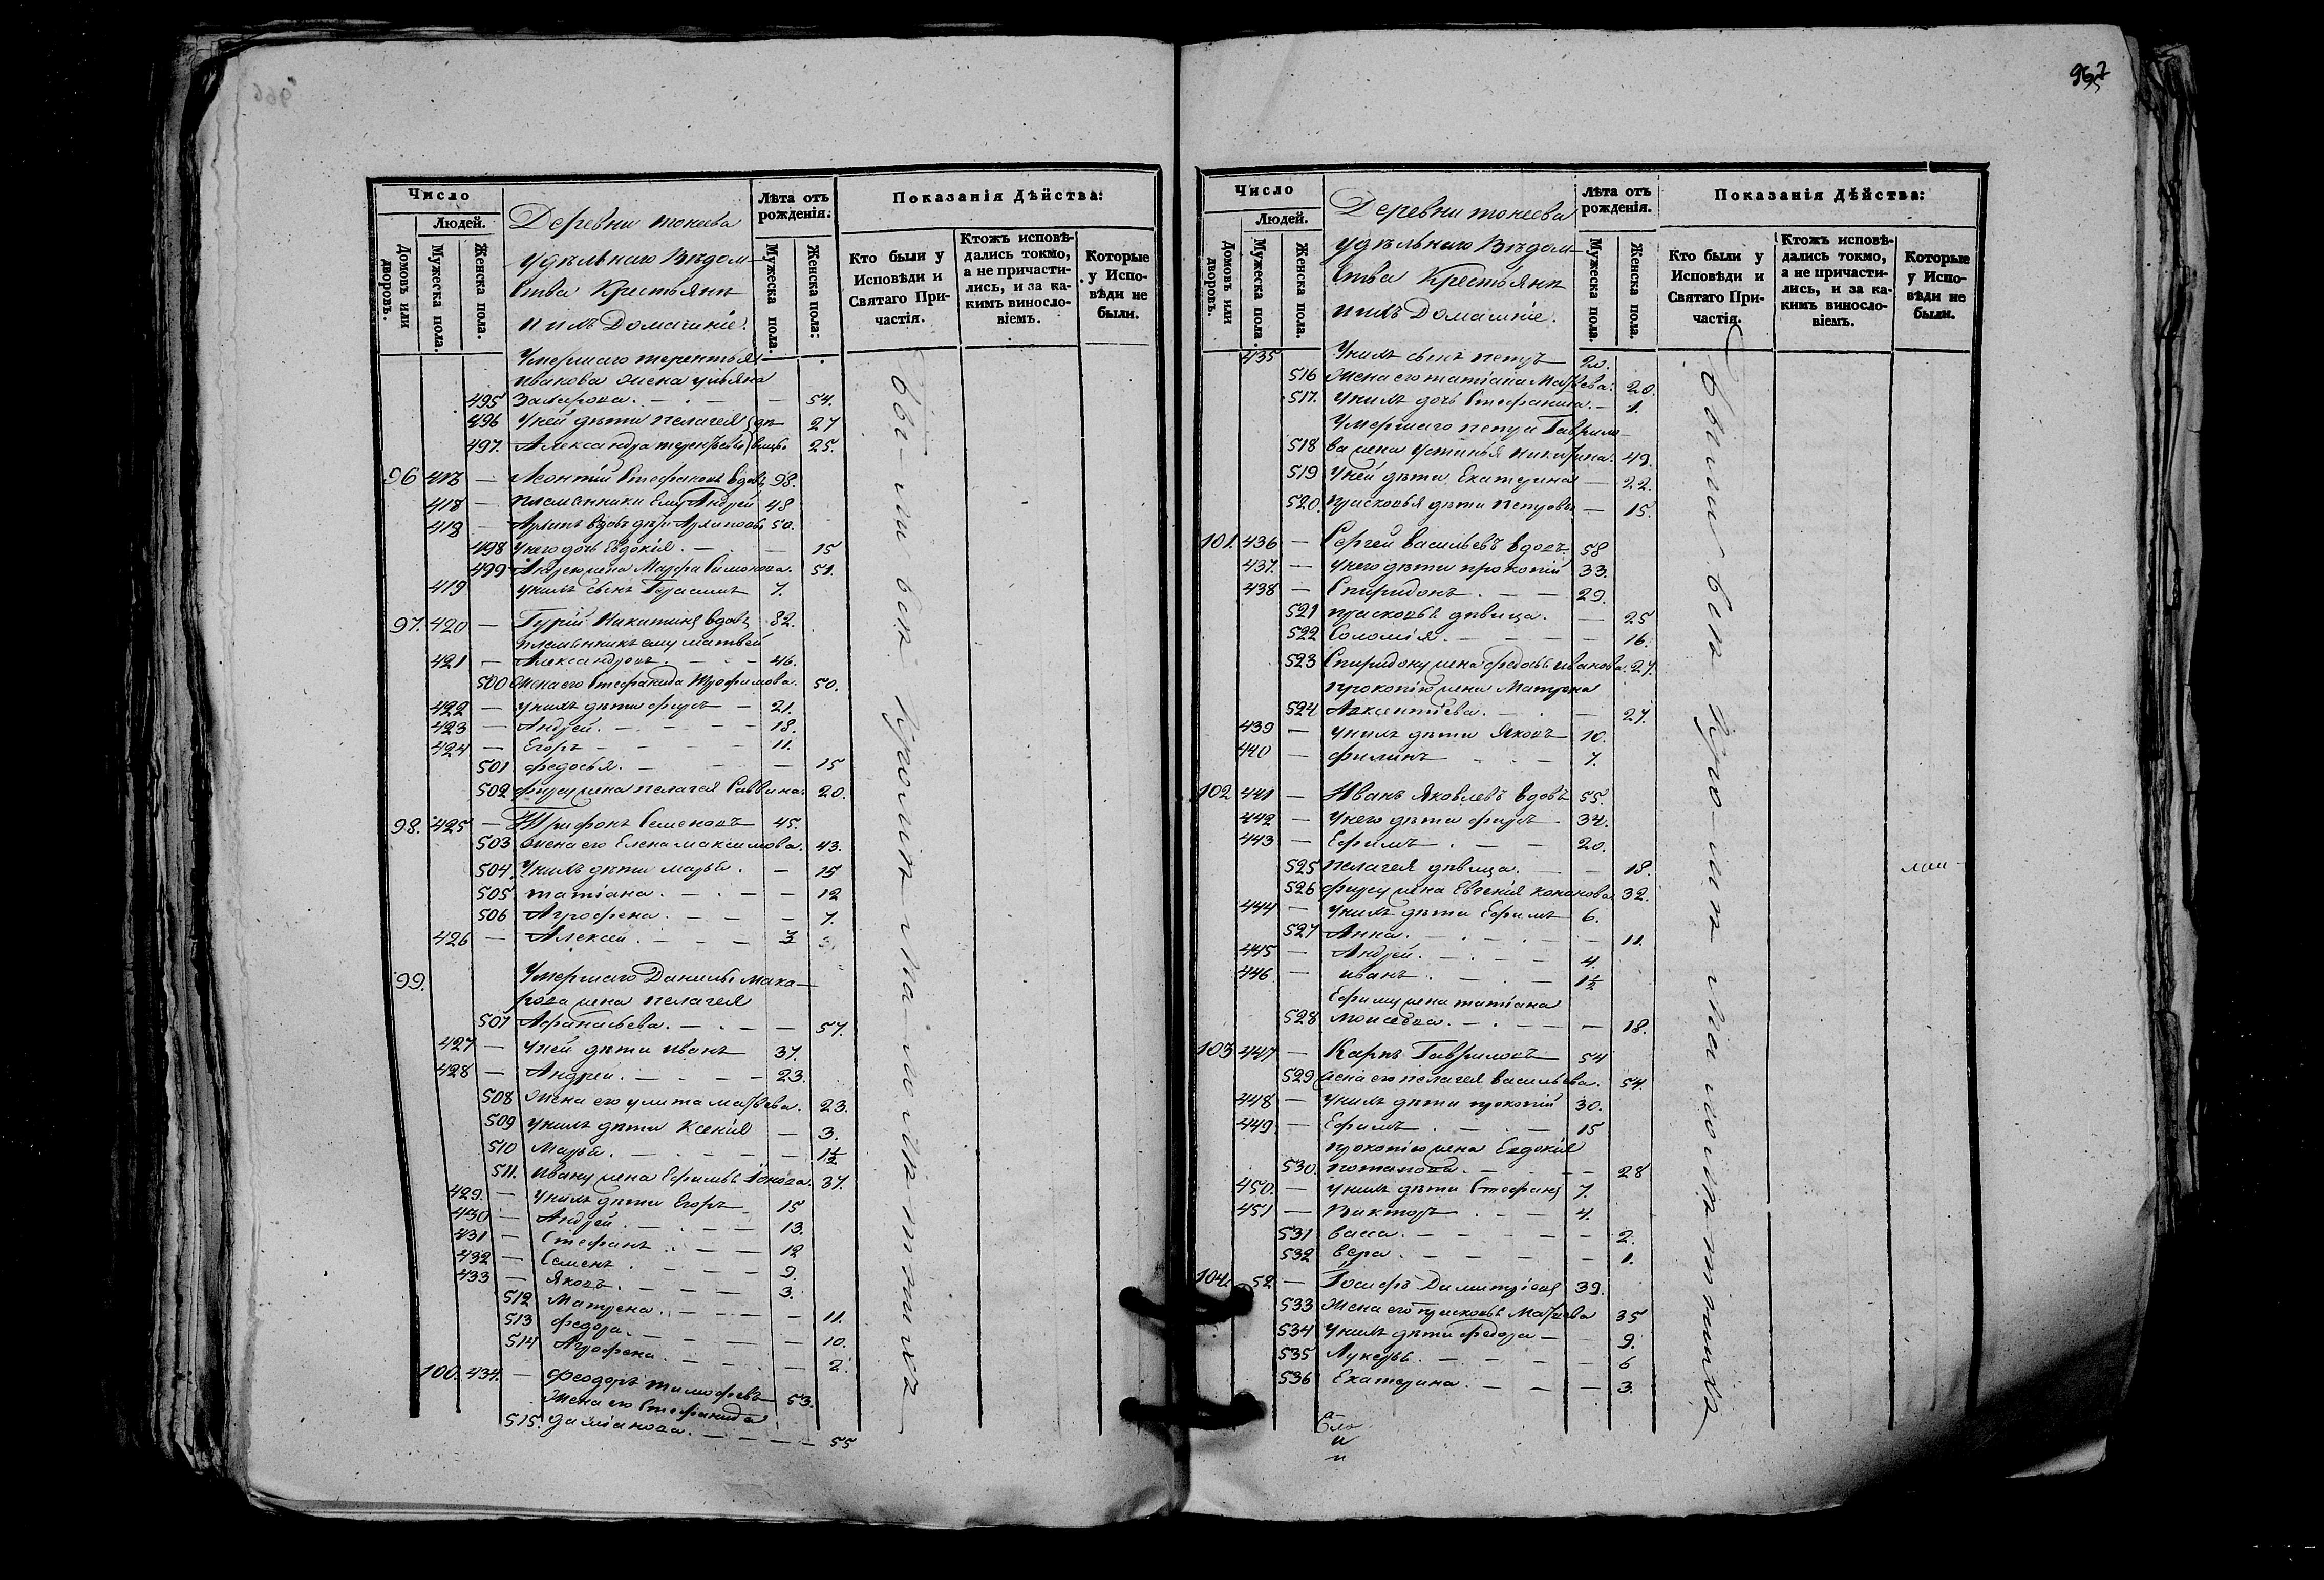 967
Число
Людей.
Домовъ или дворовъ.
Мужеска пола.
Женска пола.
Деревни токеева
удѣльнаго Вѣдом-
ства Крестьянѣ
и ихъ Домашніе.
Лѣта отъ рожденія:
Мужеска пола.
Женска пола:
Показанія Дѣйства:
Кто были у Исповѣди и Святаго Причастія.
Ктожъ исповѣдались токмо, а не причастились, и за какимъ винословіемъ.
Которые у Исповѣди не были.
Умершаго терентья
Ивакова жена ульяна
495 Захарова. — 54.
496 У ней дѣти пелагея 27
497. Александра 25.
96 — Леонтій Стефановъ вдовъ 98.
418 — племянники Ему Андрей 48
— Архипъ вдовъ дѣти Архиповы 50.
498 У него дочь Евдокія. — 15
499 Андрею жена Марфа Симонова. 51.
419 у нихъ сынъ Герасимъ 7.
97. 420 — Гурій Никитинъ вдовъ 82.
племянникъ ему матвей
421 — Александровъ. — 46.
500 жена его Стефанида Трофимова. 50.
422 — у нихъ дѣти фирсъ — 21.
423 — Андрей. — 18.
424 — Егоръ — 11.
501 федосья. — 15
502 фирсу жена пелагея Саввина. 20.
98. 425 — Трифонъ Семеновъ 45.
503 жена его Елена максимова. 43.
504. У нихъ дѣти марья. — 15
505 татіана. — 12
506 Агрофена. — 7.
426 — Алексѣй. — 3
99. Умершаго Данилы Мака-
рова жена пелагея
507 Афанасьева. — 57.
427 — у ней дѣти иванъ 37.
428 — Андрей. — 23.
508 жена его улита матвѣева. 23.
509 у нихъ дѣти Ксенія — 3.
510 Марья. — 1½
511. ивану жена Ефимья Іонова. 37.
429. — у нихъ дѣти Егоръ 15
430 — Андрей. — 13.
431 — Стефанъ. — 12
432 — Семенъ. — 9.
433 — Яковъ. — 3.
512 Матрена. — 11.
513 федора. — 10.
514 Агрофена. — 2.
100. 434. — феодоръ тимофеевъ 53.
жена его Стефанида
515. даміанова. — 55
Число
Людей.
Домовъ или дворовъ.
Мужеска пола.
Женска пола.
Деревни токеева
удѣльнаго Вѣдом-
ства Крестьянѣ
и ихъ Домашніе.
Лѣта отъ рожденія.
Мужеска пола.
Женска пола.
Показанія Дѣйства:
Кто были у Исповѣди и Святаго Причастія.
Ктожъ исповѣдались токмо, а не причастились, и за какимъ винословіемъ.
Которые у Исповѣди не были.
435 У нихъ сынъ петръ 20.
516 жена его татіана Матвѣева. 20.
517. У нихъ дочь Стефанида. — 1.
Умершаго петра Гаврило-
518 ва жена устинья никитина. 49.
519 У ней дѣти Екатерина — 22.
520. прасковья дѣти петровы — 15.
101. 436 — Сергей васильевъ вдовъ 58
437. — у него дѣти прокопій 33.
438 — Спиридонъ. — 29.
521 прасковья дѣвица. — 25
522 Соломія. — 16.
523 Спиридону жена федосья иванова. 27.
прокопію жена Матрона
524 Авксентіева. — 27.
439 — у нихъ дѣти Яковъ 10.
440 — филипъ — 7.
102 441 — Иванъ Яковлевъ вдовъ 55.
442 — У него дѣти фирсъ — 34.
443 — Ефимъ. — 20.
525 пелагея дѣвица. — 18.
526 фирсу жена Евгенія кононова 32.
444 — у нихъ дѣти Ефимъ 6.
527 Анна. — 11.
445 — Андрей. — 4.
446 — иванъ. — 1½
Ефиму жена татіана
528 моисеева. — 18.
103 447 — Карпъ Гавриловъ 54
529 жена его пелагея васильева. 54.
448 — у нихъ дѣти прокопій 30.
449. — Ефимъ. — 15
прокопію жена Евдокія
530. потапова. — 28
450. — у нихъ дѣти Стефанъ 7.
451 — Викторъ. — 4.
531 васса. — 2.
532 вѣра. — 1.
104. 52 — Іосифъ Димитріевъ 39.
533 жена его прасковья Матвѣева 35
534 У нихъ дѣти федора — 9.
535 Лукерья. — 6
536 Екатерина. — 3.